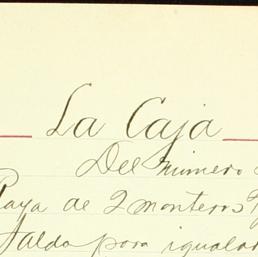 La Caja
Del número
Raya de 2 monteros
Saldo para igualar